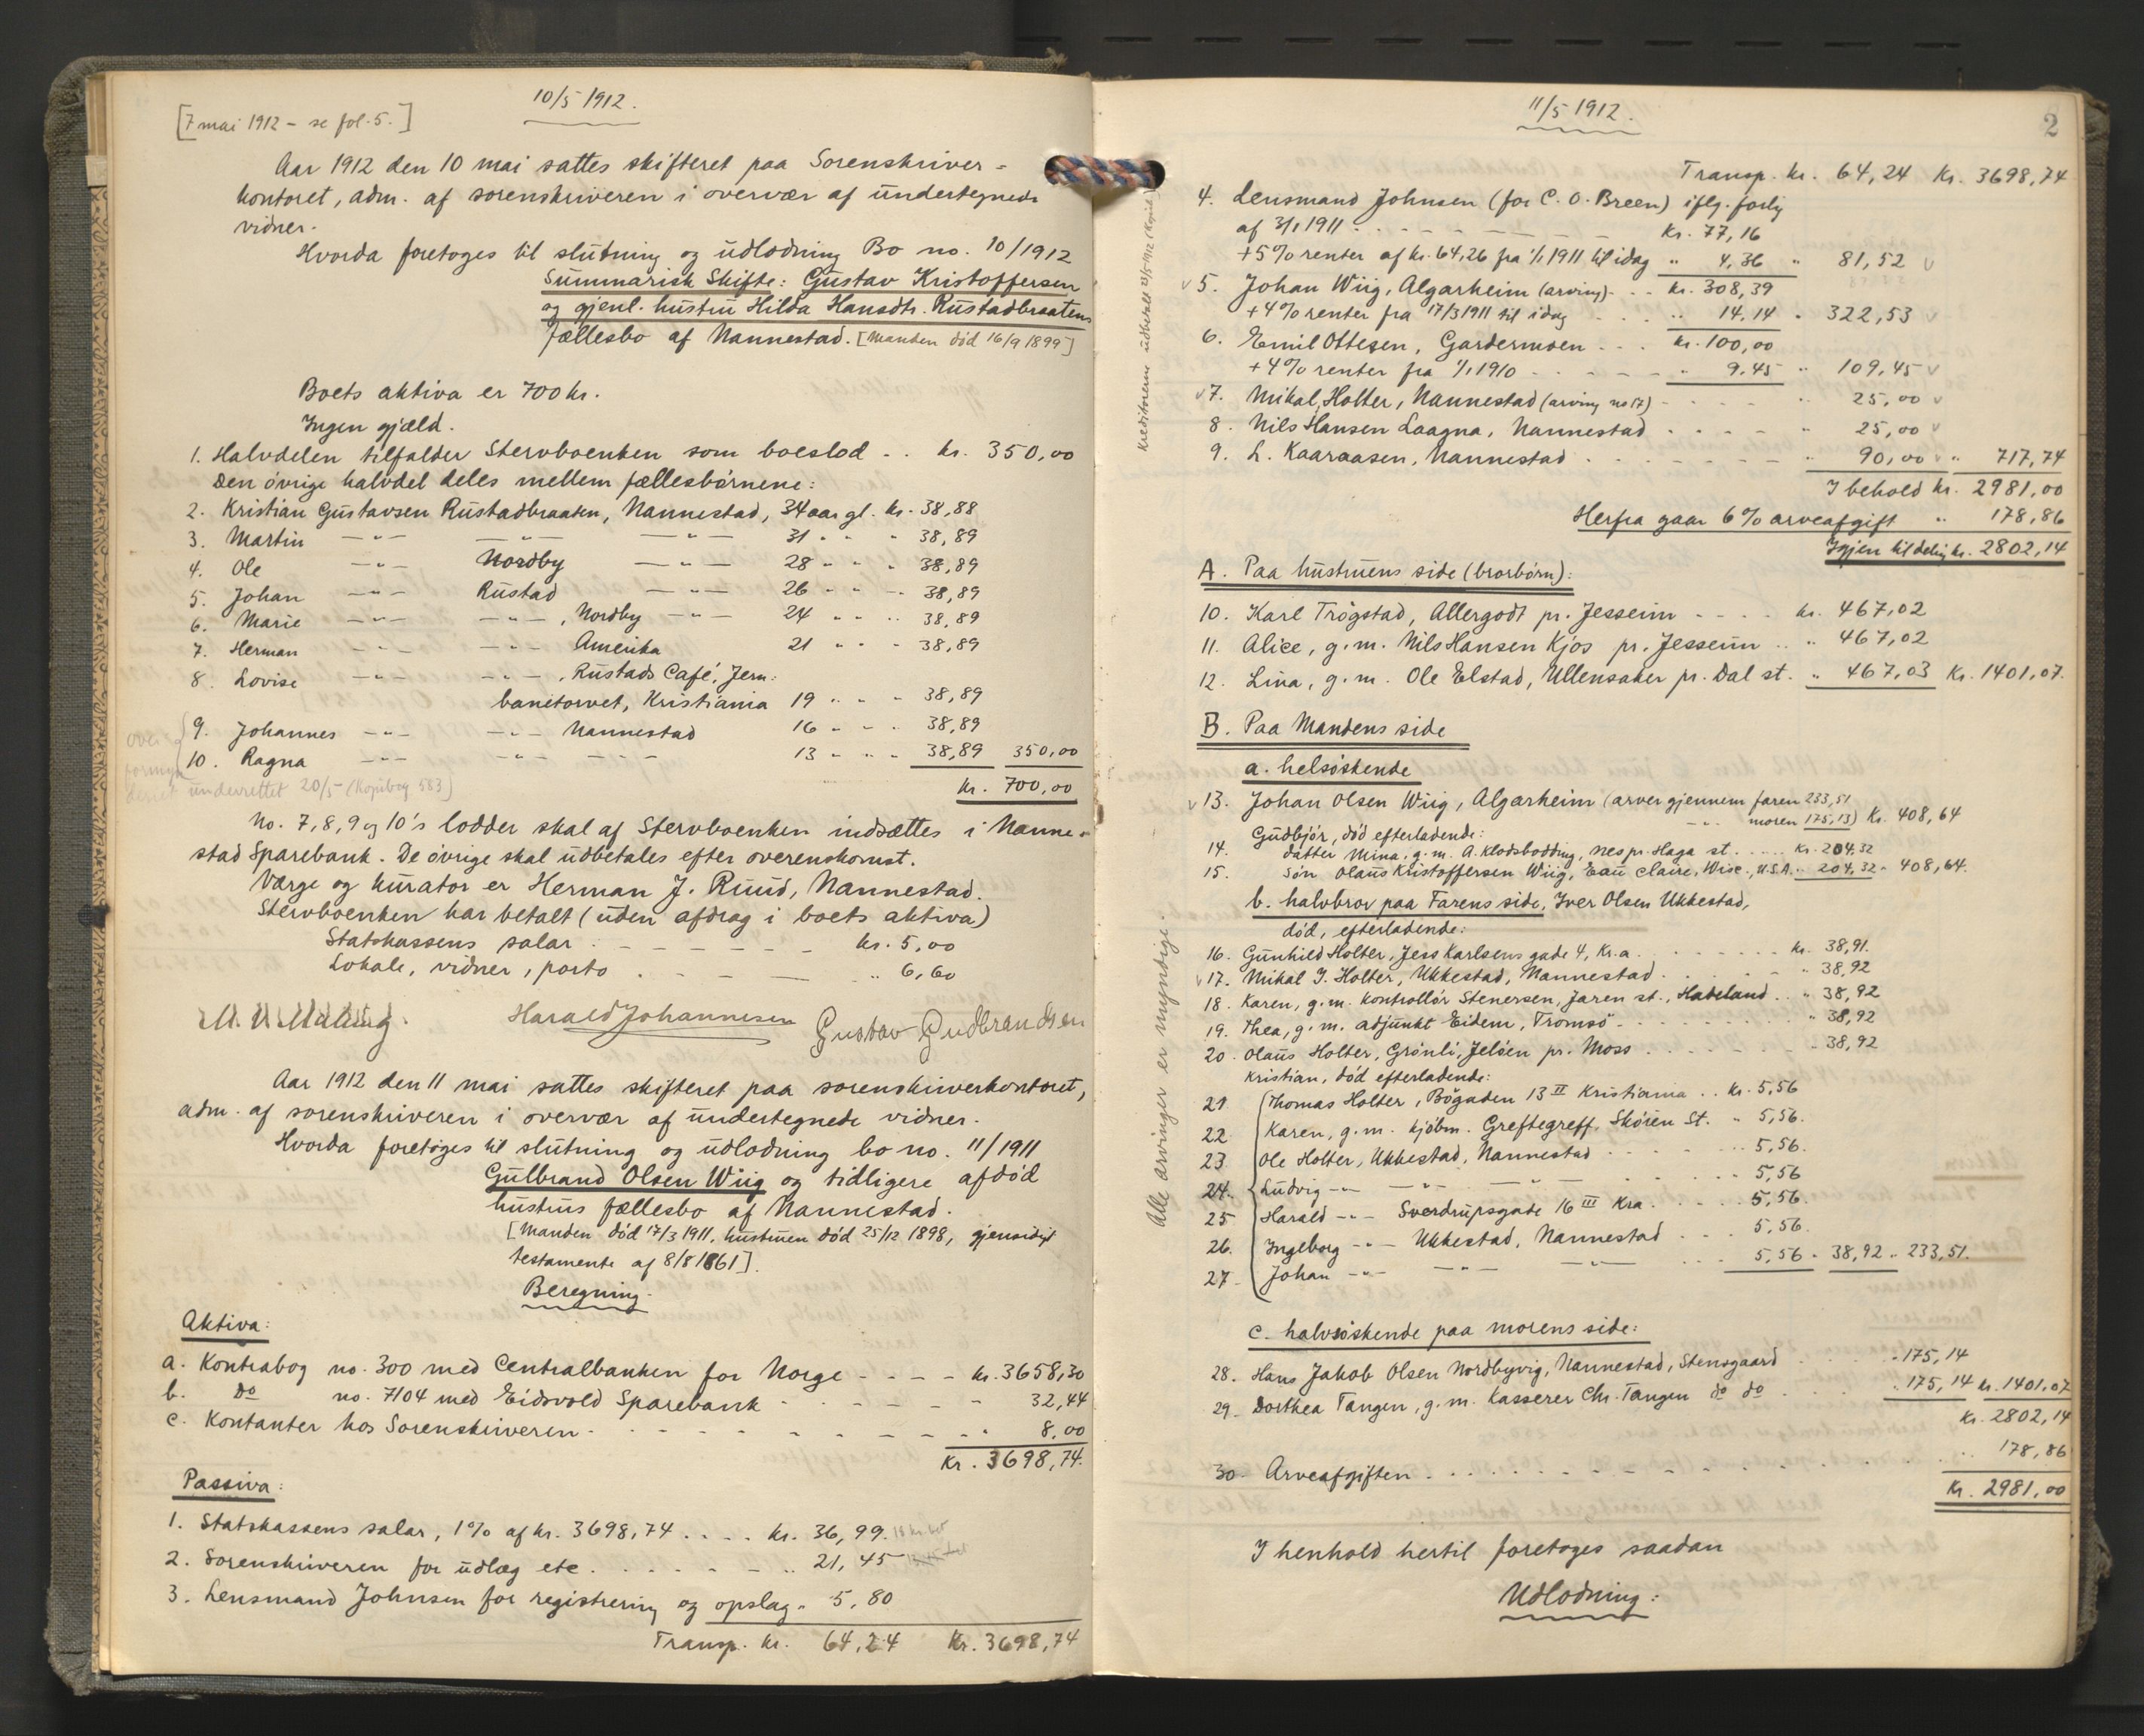 10/5 1912.
[7 mai 1912 - se fol. 5.]
Aar 1912 den 10 mai sattes skifteret paa Sorenskriver=
kontoret, adm. af sorenskriveren i overvær af undertegnede
vidner.
Hvorda foretoges til slutning og udlodning Bo no. 10/1912
Summarisk Skifte: Gustav Kristoffersen
og gjenl. hustru Hilda Hansdtr. Rustadbraatens
fællesbo af Nannestad. [Manden död 16/9 1899]
Boets aktiva er 700 kr.
Ingen gjæld.
1. Halvdelen tilfalder Stervboenken som boeslod .. kr. 350,00
Den övrige halvdel deles mellem fællesbörnene:
2. Kristian Gustavsen Rustadbraaten, Nannestad, 34 aar gl. kr. 38,88
3. Martin —"— —"— —"— 31 " " " 38,89
4. Ole —"— Nordby —"— 28 " " " 38,89
5. Johan —"— Rustad —"— 26 " " " 38,89
6. Marie —"— —"—, Nordby —"— 24 " " " 38,89
7. Herman —"— —"— Amerika 21 " " " 38,89
8. Lovise —"— —"—, Rustads Café, Jern:
banetorvet, Kristiania 19 " " " 38,89
9. Johannes —"— —"— Nannestad 16 " " " 38,89
10. Ragna —"— —"— —"— 13 " " " 38,89 350,00
kr. 700,00
underrettet 20/5 (Kopibog 583)
No. 7, 8, 9 og 10's lodder skal af Stervboenken indsættes i Nanne=
stad Sparebank. De övrige skal udbetales efter overenskomst.
Værge og kurator er Herman J. Ruud, Nannestad.
Stervboenken har betalt (uden afdrag i boets aktiva)
Statskassens salar . . . kr. 5,00
Lokale, vidner, porto . . . " 6,60
Harald Johannesen Gustav Gudbrandsen
Aar 1912 den 11 mai sattes skifteret paa sorenskriverkontoret,
adm. af sorenskriveren i overvær af undertegnede vidner.
Hvorda foretoges til slutning og udlodning bo no. 11/1911
Gulbrand Olsen Wiig og tidligere afdöd
hustrus fællesbo af Nannestad.
[Manden död 17/3 1911, hustruen död 25/12 1898, gjensidigt
testamente af 8/8 1861].
Beregning.
Aktiva:
a. Kontrabog no. 300 med Centralbanken for Norge - - - - kr. 3658,30
b. Do no. 7104 med Eidsvold Sparebank - - - - 32,44
c. Kontanter hos Sorenskriveren - - - - " 8,00
Kr. 3698,74.
Passiva:
1. Statskassens salar, 1% af kr. 3698,74 .... kr. 36,99.
2. Sorenskriveren for udlæg etc. . . . " 21,45
3. Lensmand Johnsen for registrering og opslag " 5,80
Transp. kr. 64,24 Kr. 3698,74
11/5 1912.
2
Transp. kr. 64,24 Kr. 3698,74
4. Lensmand Johnsen (for C. O. Breen) iflg. forlig
af 3/1 1911 . . . Kr. 77,16
+5% renter af kr. 64,26 fra 1/1 1911 til idag " 4,36 " 81,52
5. Johan Wiig, Algarheim (arving) . . . kr. 308,39
+4% renter fra 17/3 1911 til idag . . . " 14,14 " 322,53
6. Emil Ottesen, Gardermoen . . . kr. 100,00
+4% renter fra 1/1 1910 - - - " 9,45 " 109,45
7. Mikal Holter, Nannestad (arving no 17) - - - " 25,00
8. Nils Hansen Laagna, Nannestad . . . " 25,00
9. L. Kaaraasen, Nannestad . . . " 90,00 " 717,74
I behold kr. 2981,00
Herfra gaar 6% arveafgift " 178,86
Igjen til deling kr. 2802,14
A. Paa hustruens side (brorbörn):
10. Karl Trögstad, Allergodt pr. Jesseim - - - - kr. 467,02
11. Alice, g.m. Nils Hansen Kjos pr. Jesseim .. " 467,02
12. Lina, g.m. Ole Elstad, Ullensaker pr. Dal st. " 467,03 Kr. 1401,07.
B. Paa Mandens side
a. helsöskende
13. Johan Olsen Wiig, Algarheim (arver gjennem faren 233,51
—"— moren 175,13) Kr. 408,64
Gudbjör, död efterladende:
14. datter Mina, g.m. A. Klodsbodding, Nes pr. Haga st. .... Kr. 204,32
15. Sön Olaus Kristoffersen Wiig, Eau Claire, Wisc., U.S.A. " 204,32 " 408,64.
b. halvbror paa Farens side, Iver Olsen Ukkestad,
död, efterladende:
16. Gunhild Holter, Jess Karlsens gade 4, Kr.a . . . kr. 38,91.
17. Mikal I. Holter, Ukkestad, Nannestad . . . " 38,92
18. Karen, g.m. kontrollör Stenersen, Jaren st., Hadeland .. " 38,92
19. Thea, g.m. adjunkt Eidem, Tromsö . . . " 38,92
20. Olaus Holter, Grönli, Jelöen pr. Moss . . . " 38,92
Kristian, död efterladende:
21 Thomas Holter, Bögaden 13 II Kristiania .. kr. 5,56
22 Karen, g.m. kjöbm. Greftegreff, Skören St. " 5,56.
23 Ole Holter, Ukkestad, Nannestad . . . " 5,56.
24. Ludvig —"— —"— —"— . . . 5,56
25 Harald —"— Sverdrupsgade 16 III Kra. . . . 5,56.
26. Ingeborg —"— Ukkestad, Nannestad . . . 5,56.
27 Johan —"— —"— —"— . . . 5,56 " 38,92 " 233,51.
c. halvsöskende paa morens side:
28. Hans Jakob Olsen Nordbyvig, Nannestad, Stensgaard . . . " 175,14
29. Dorthea Tangen, g.m. Kasserer Chr. Tangen do do . . . " 175,14 kr. 1401,07
Kr. 2802,14
30. Arveafgiften . . . " 178,86
Kr. 2981,00
I henhold hertil foretoges saadan
Udlodning:
Alle arvinger er myndige.